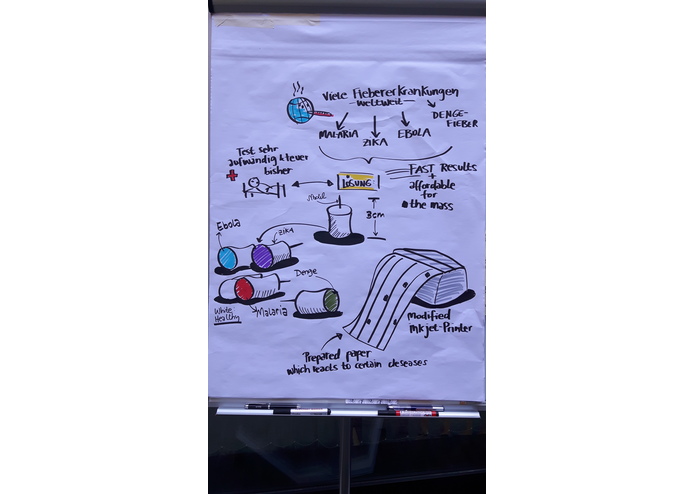 Viele Fiebererkrankungen
-weltweit-
DENGE-
FIEBER
MALARIA
ZIKA
EBOLA
Test sehr
aufwändig & teuer
bisher
LÖSUNG
FAST Results
+
affordable
for
the mass
3cm
Ebola
ZIKA
Denge
White
Healthy
Malaria
Modified
Inkjet-Printer
Prepared paper
which reacts to certain deseases